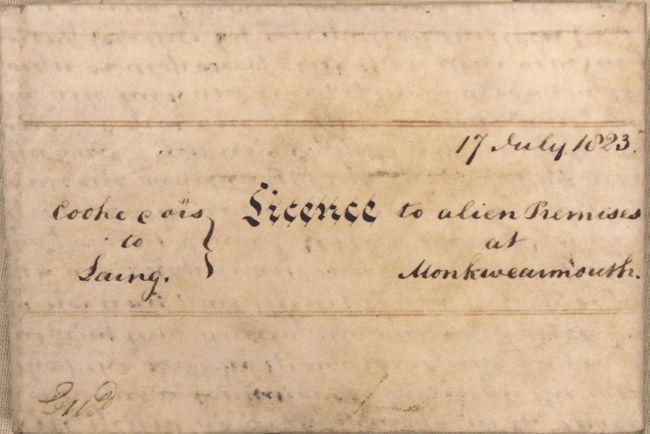 17 July 1823.
Cocke & oīs
to
Laing.
Licence to alien Premises
at
Monkwearmouth.